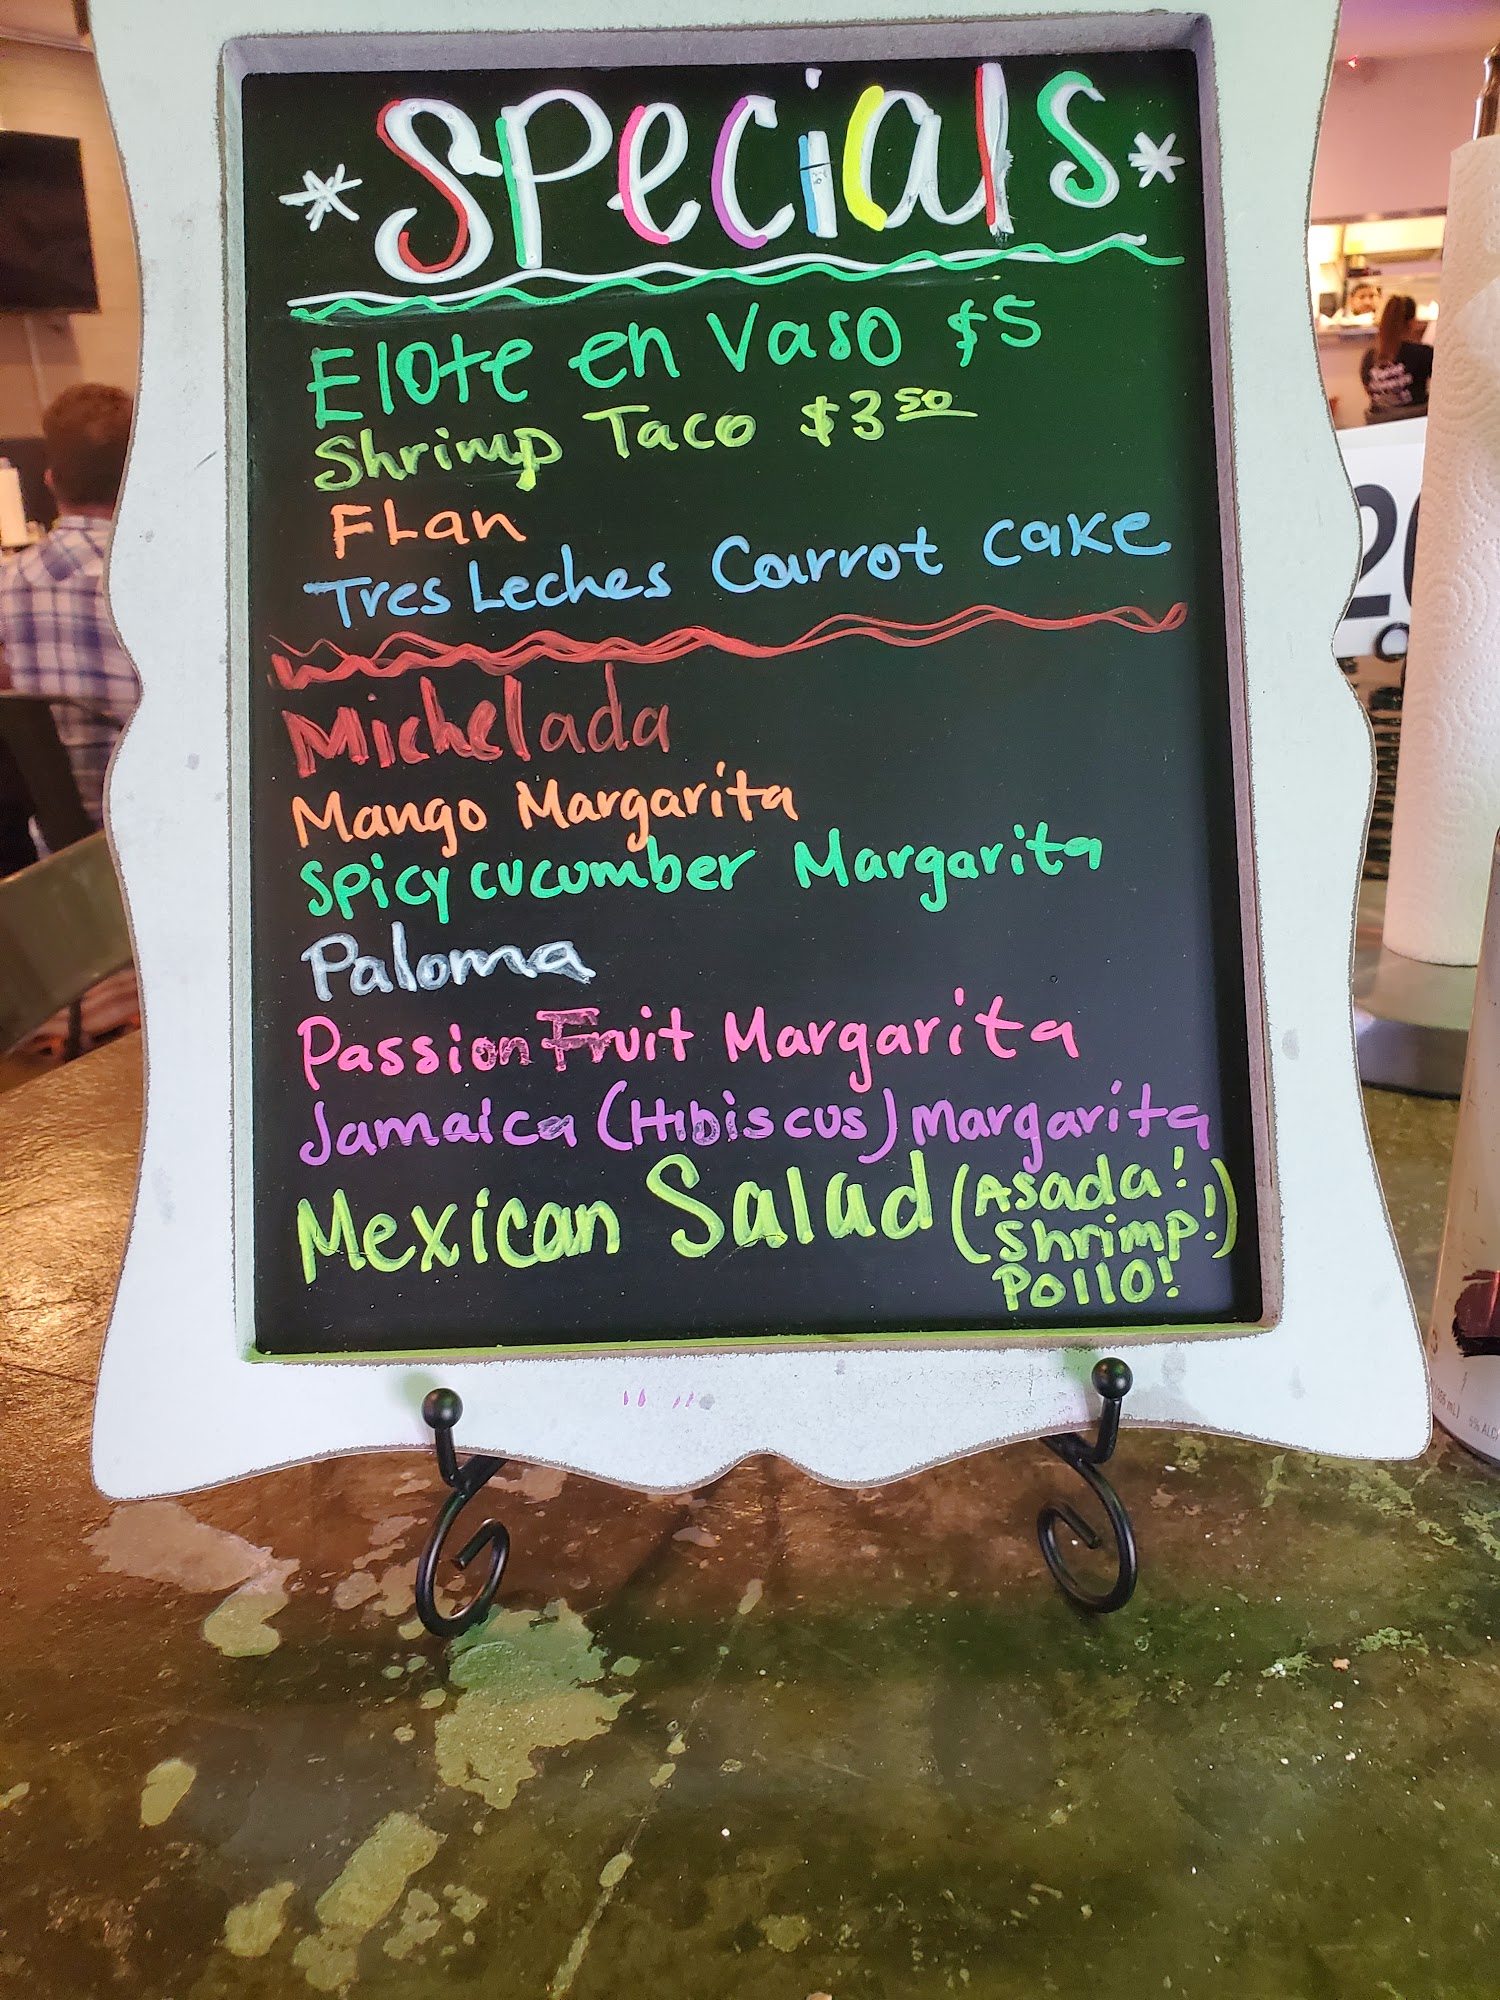 *Specials*
Elote en Vaso $5
Shrimp Taco $3 50
FLan
Tres Leches Carrot cake
Michelada
Mango Margarita
Spicy cucumber Margarita
Paloma
Passion Fruit Margarita
Jamaica (Hibiscus) Margarita
Mexican Salad (Asada!
Shrimp!)
Pollo!